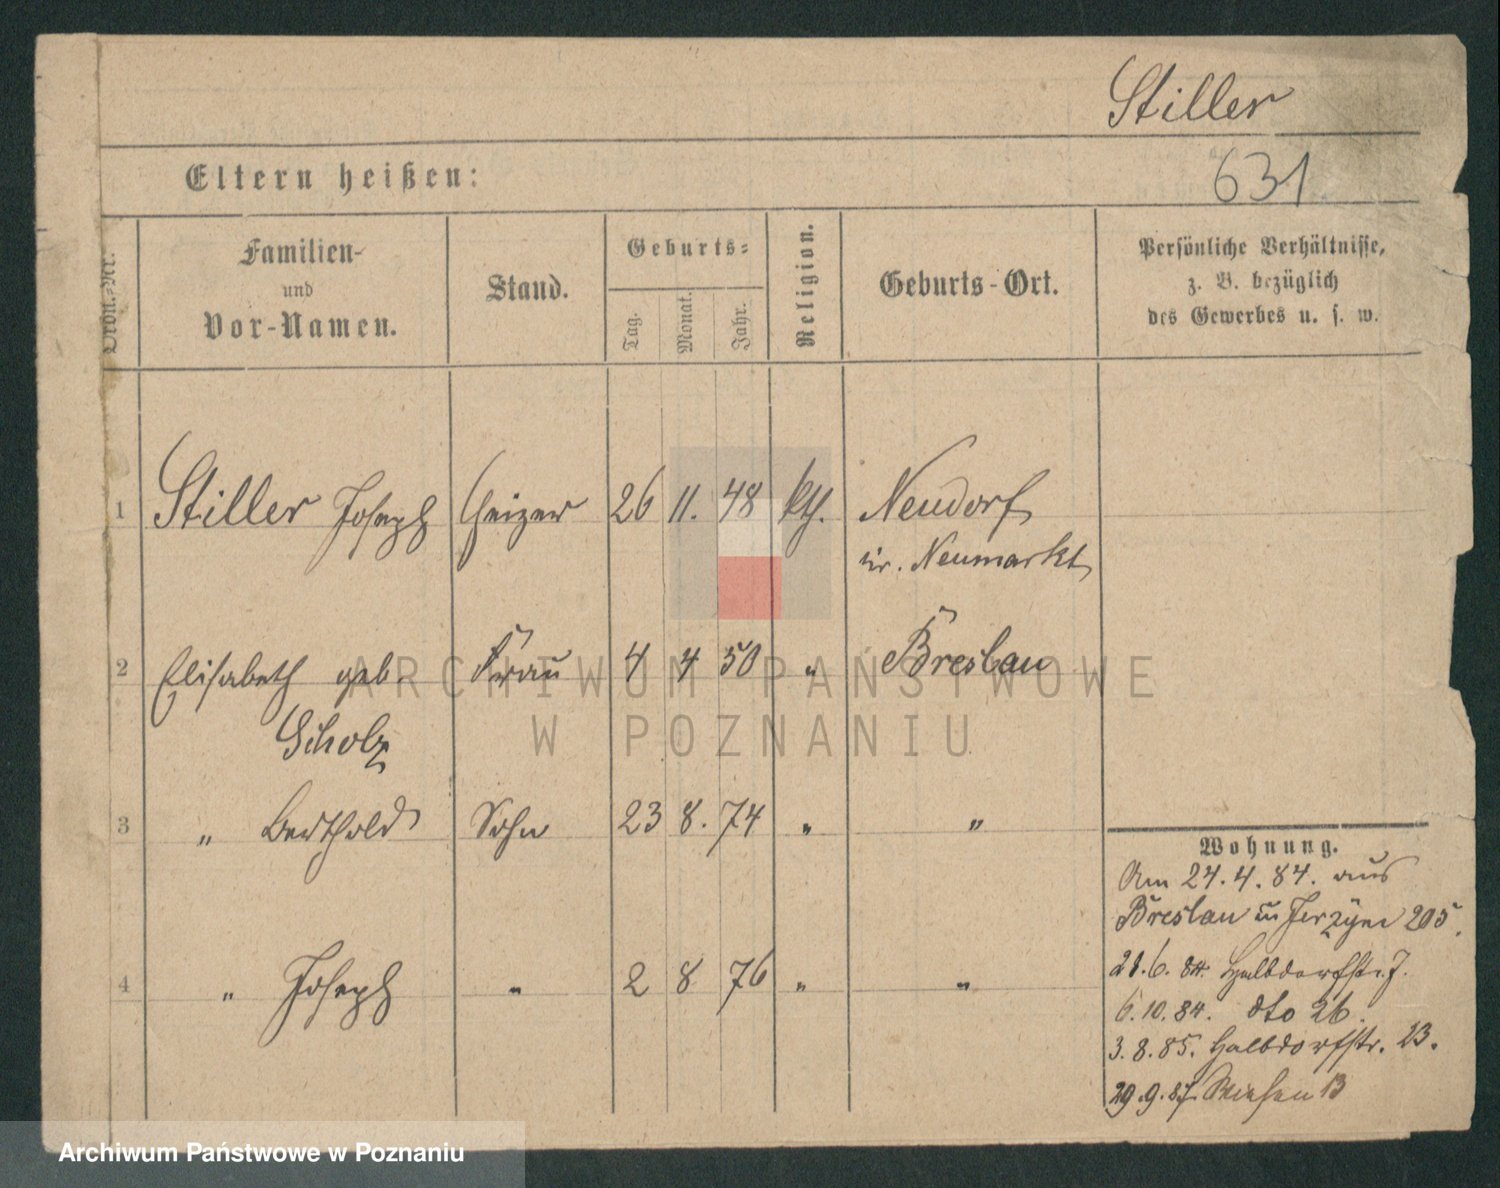 Stiller
631
Eltern heißen:
Ordn.-Nr.
Familien-
und
Vor-Namen.
Stand.
Geburts-
Tag.
Monat.
Jahr.
Religion.
Geburts-Ort.
Persönliche Verhältnisse,
z. B. bezüglich
des Gewerbes u. s. w.
1 Stiller Joseph Heizer 26 11. 48 kth. Neudorf
Kr. Neumarkt
2 Elisabeth geb. Frau 4 4 50 " Breslau
Scholz
3 " Berthold Sohn 23 8. 74 " "
4 " Joseph " 2 8 76 " "
Wohnung.
Am 24.4.84. aus
Breslau in Jerzyce 205.
21.6.84. Halbdorfstr. 7.
6.10.84. dto 26.
3.8.85. Halbdorfstr. 23.
29.9.87. Wiesen 13
ARCHIWUM PAŃSTWOWE
W POZNANIU
Archiwum Państwowe w Poznaniu